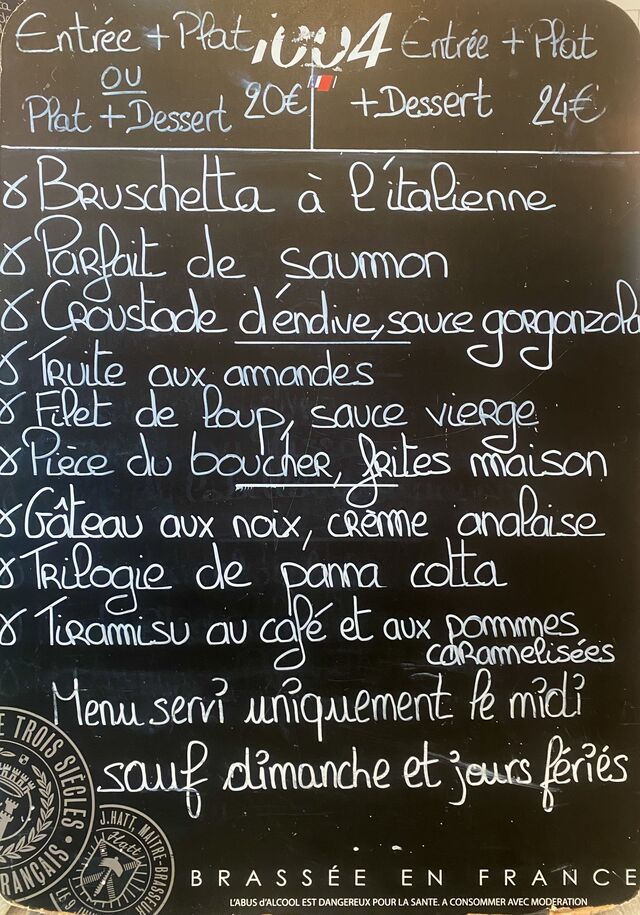 Entrée + Plat
OU
Plat + Dessert 20€
1664
Entrée + Plat
+ Dessert 24€
Bruschetta à l'italienne
Parfait de saumon
Croustade d'endive, sauce gorgonzola
Truite aux amandes
Filet de loup, sauce vierge
Pièce du boucher, frites maison
Gâteau aux noix, crème anglaise
Trilogie de panna cotta
Tiramisu au café et aux pommes
caramelisées
Menu servi uniquement le midi
sauf dimanche et jours fériés
TROIS SIÈCLES
J. HATT, MAITRE-BRASSEUR
Hatt
BRASSÉE EN FRANCE
L'ABUS d'ALCOOL EST DANGEREUX POUR LA SANTE. A CONSOMMER AVEC MODERATION